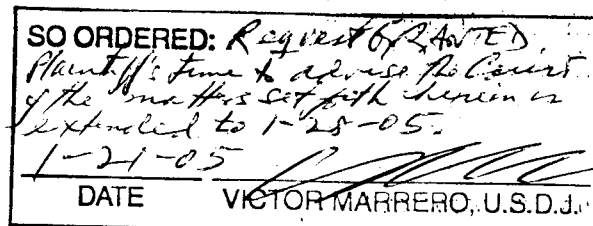 SO ORDERED: Request GRANTED.
Plaintiff's time to advise the Court
of the matters set forth herein is
extended to 1-28-05.
1-21-05
DATE VICTOR MARRERO, U.S.D.J.